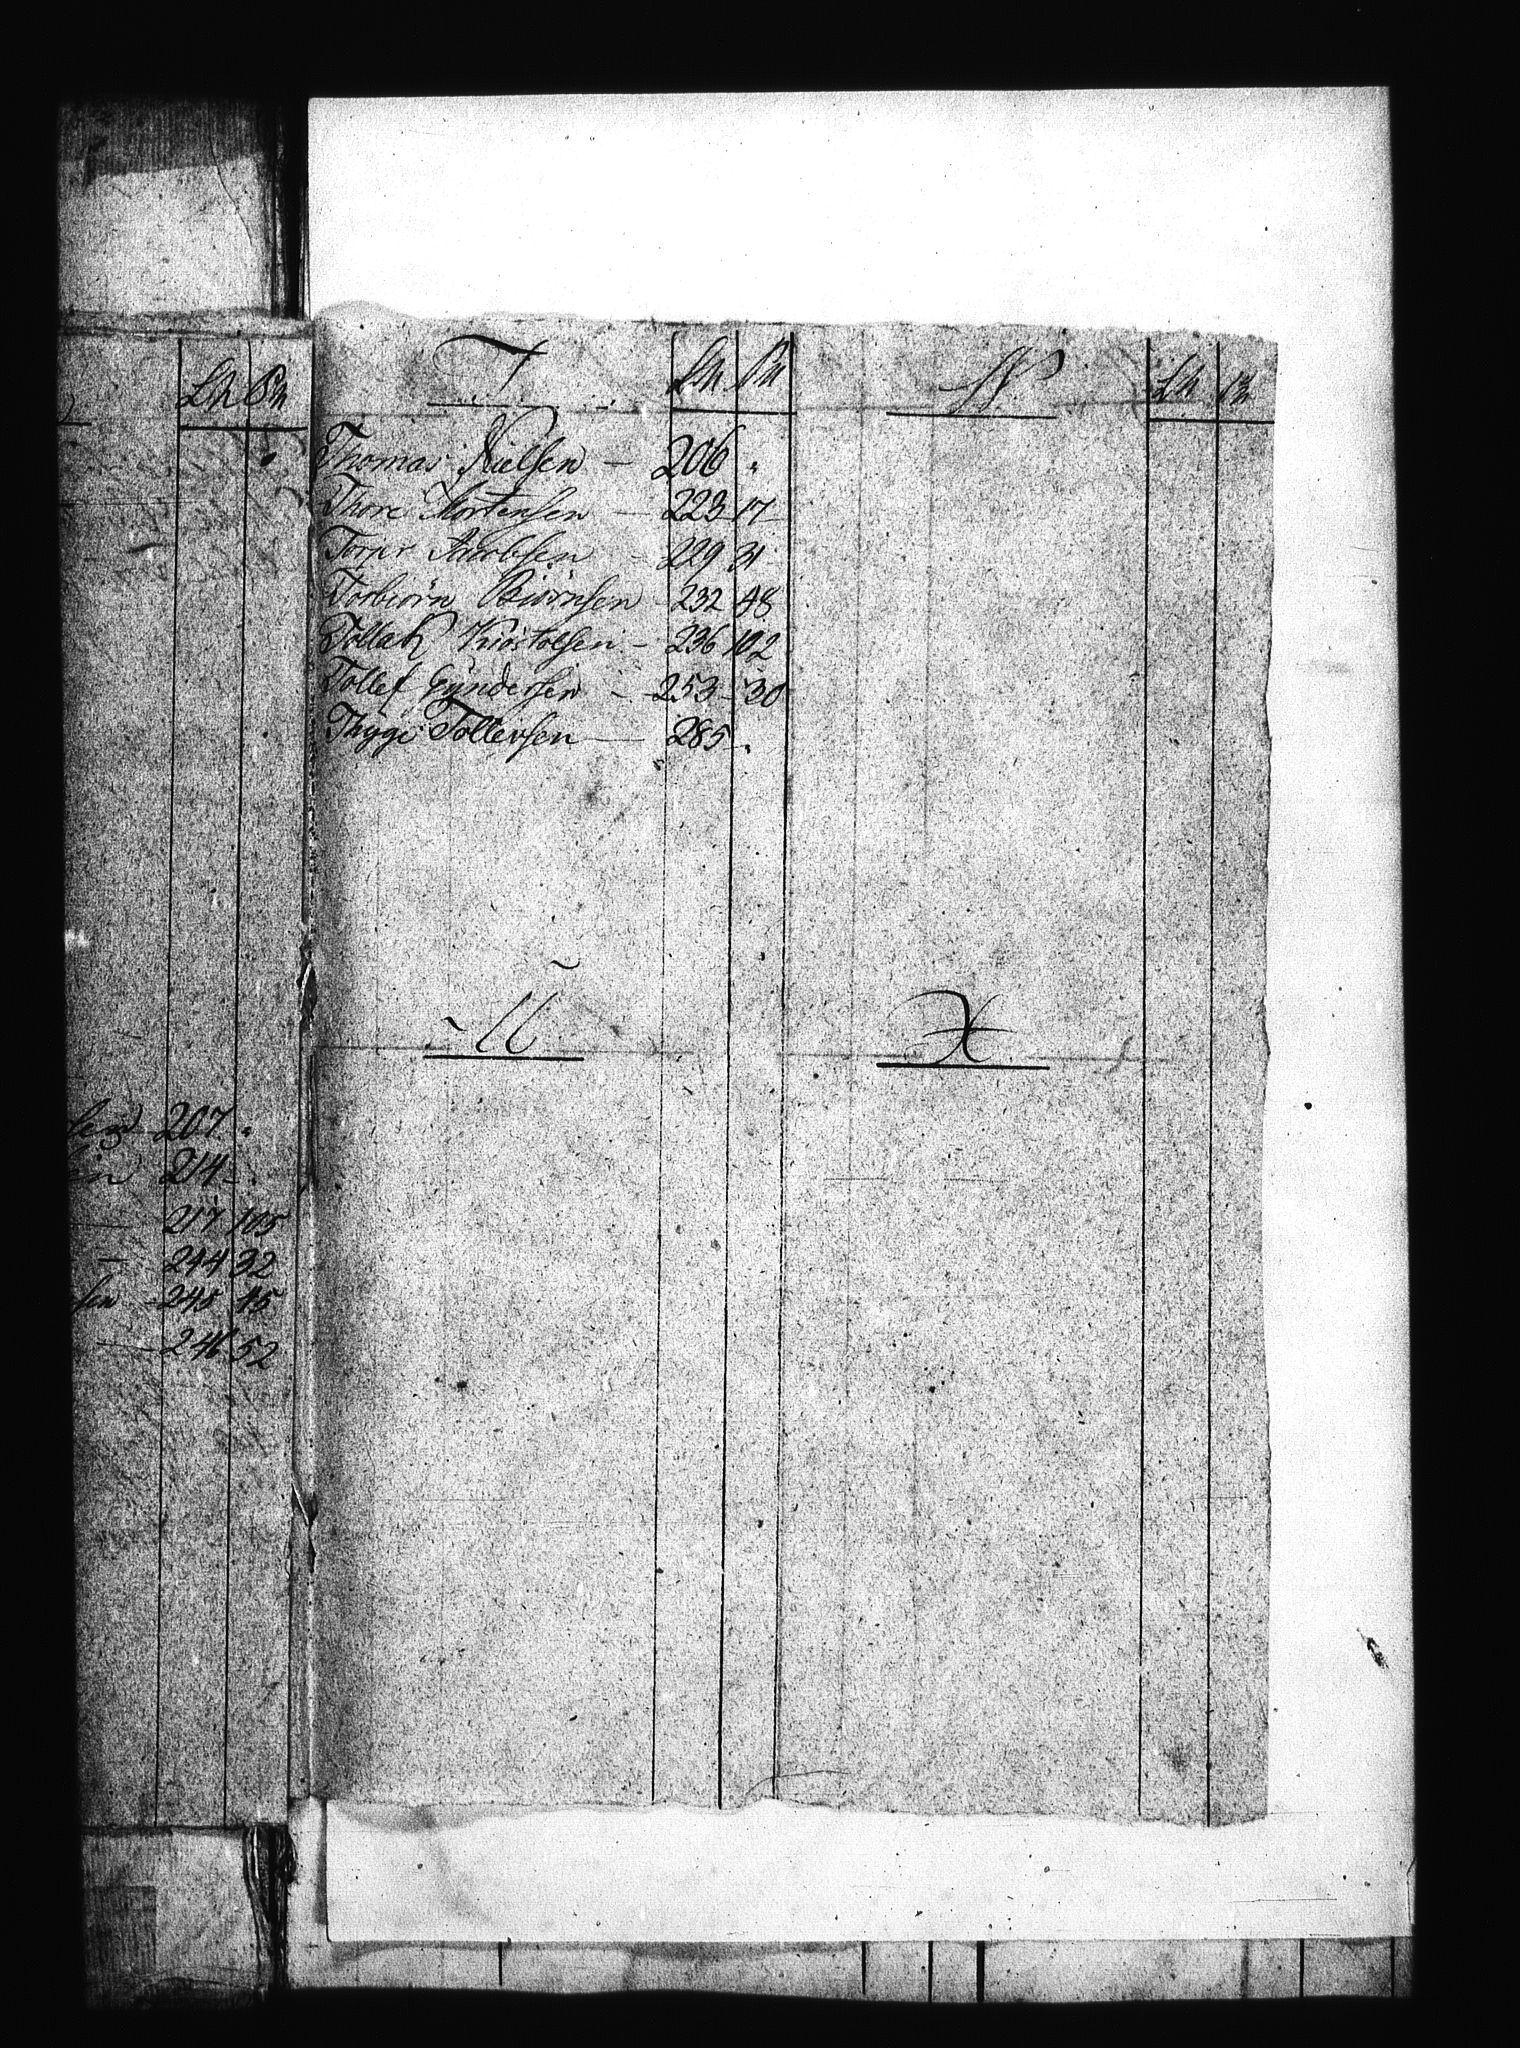 Lh Ph
207
214
217 105
244 32
245 15
246 52
T. Lh Ph
Thomas Nielsen — 206
Thore Mortensen — 223 17
Torjer Aanbsen 229 31
Torbiörn Biörnsen 232 48
Tollak Kiöstolsen 236 102
Tollef Gÿndersen — 253 30
Thÿge Tollevsen — 285
U
W Lh Ph
X